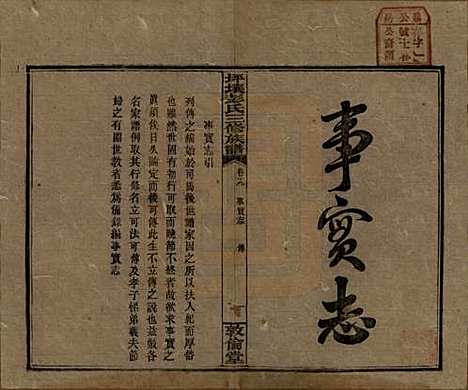 事實志
坪壤彭氏三修族譜
卷十八 事實志 傳
敦倫堂
事實志引
列傳之稱始於司馬後世譜家因之所以扶人紀而厚俗
也雖然世固有初行可取而晚節不終者故欲求事實之
眞須俟日久論定而後可傳此生不立傳之說也茲編倣
名家譜例取其行爲名立可法可傳及孝子悌弟義夫節
婦之有關世教者爲備錄編事實志